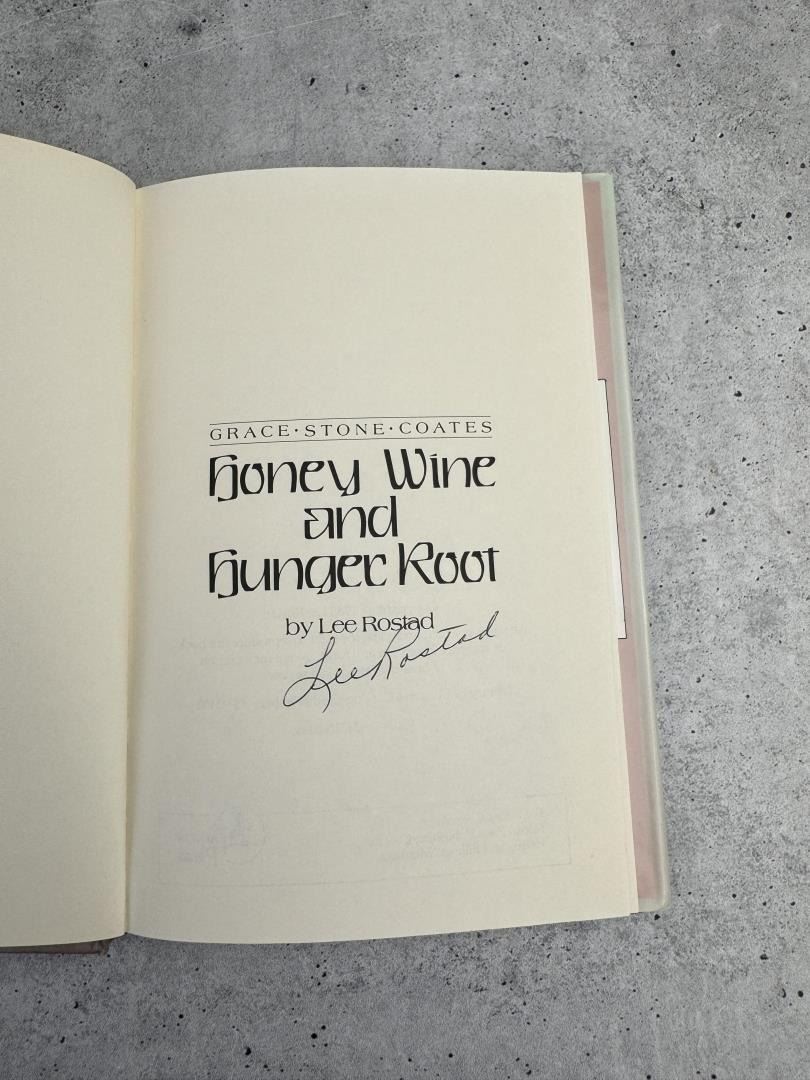 GRACE·STONE·COATES
Honey Wine
and
Hunger Root
by Lee Rostad
Lee Rostad